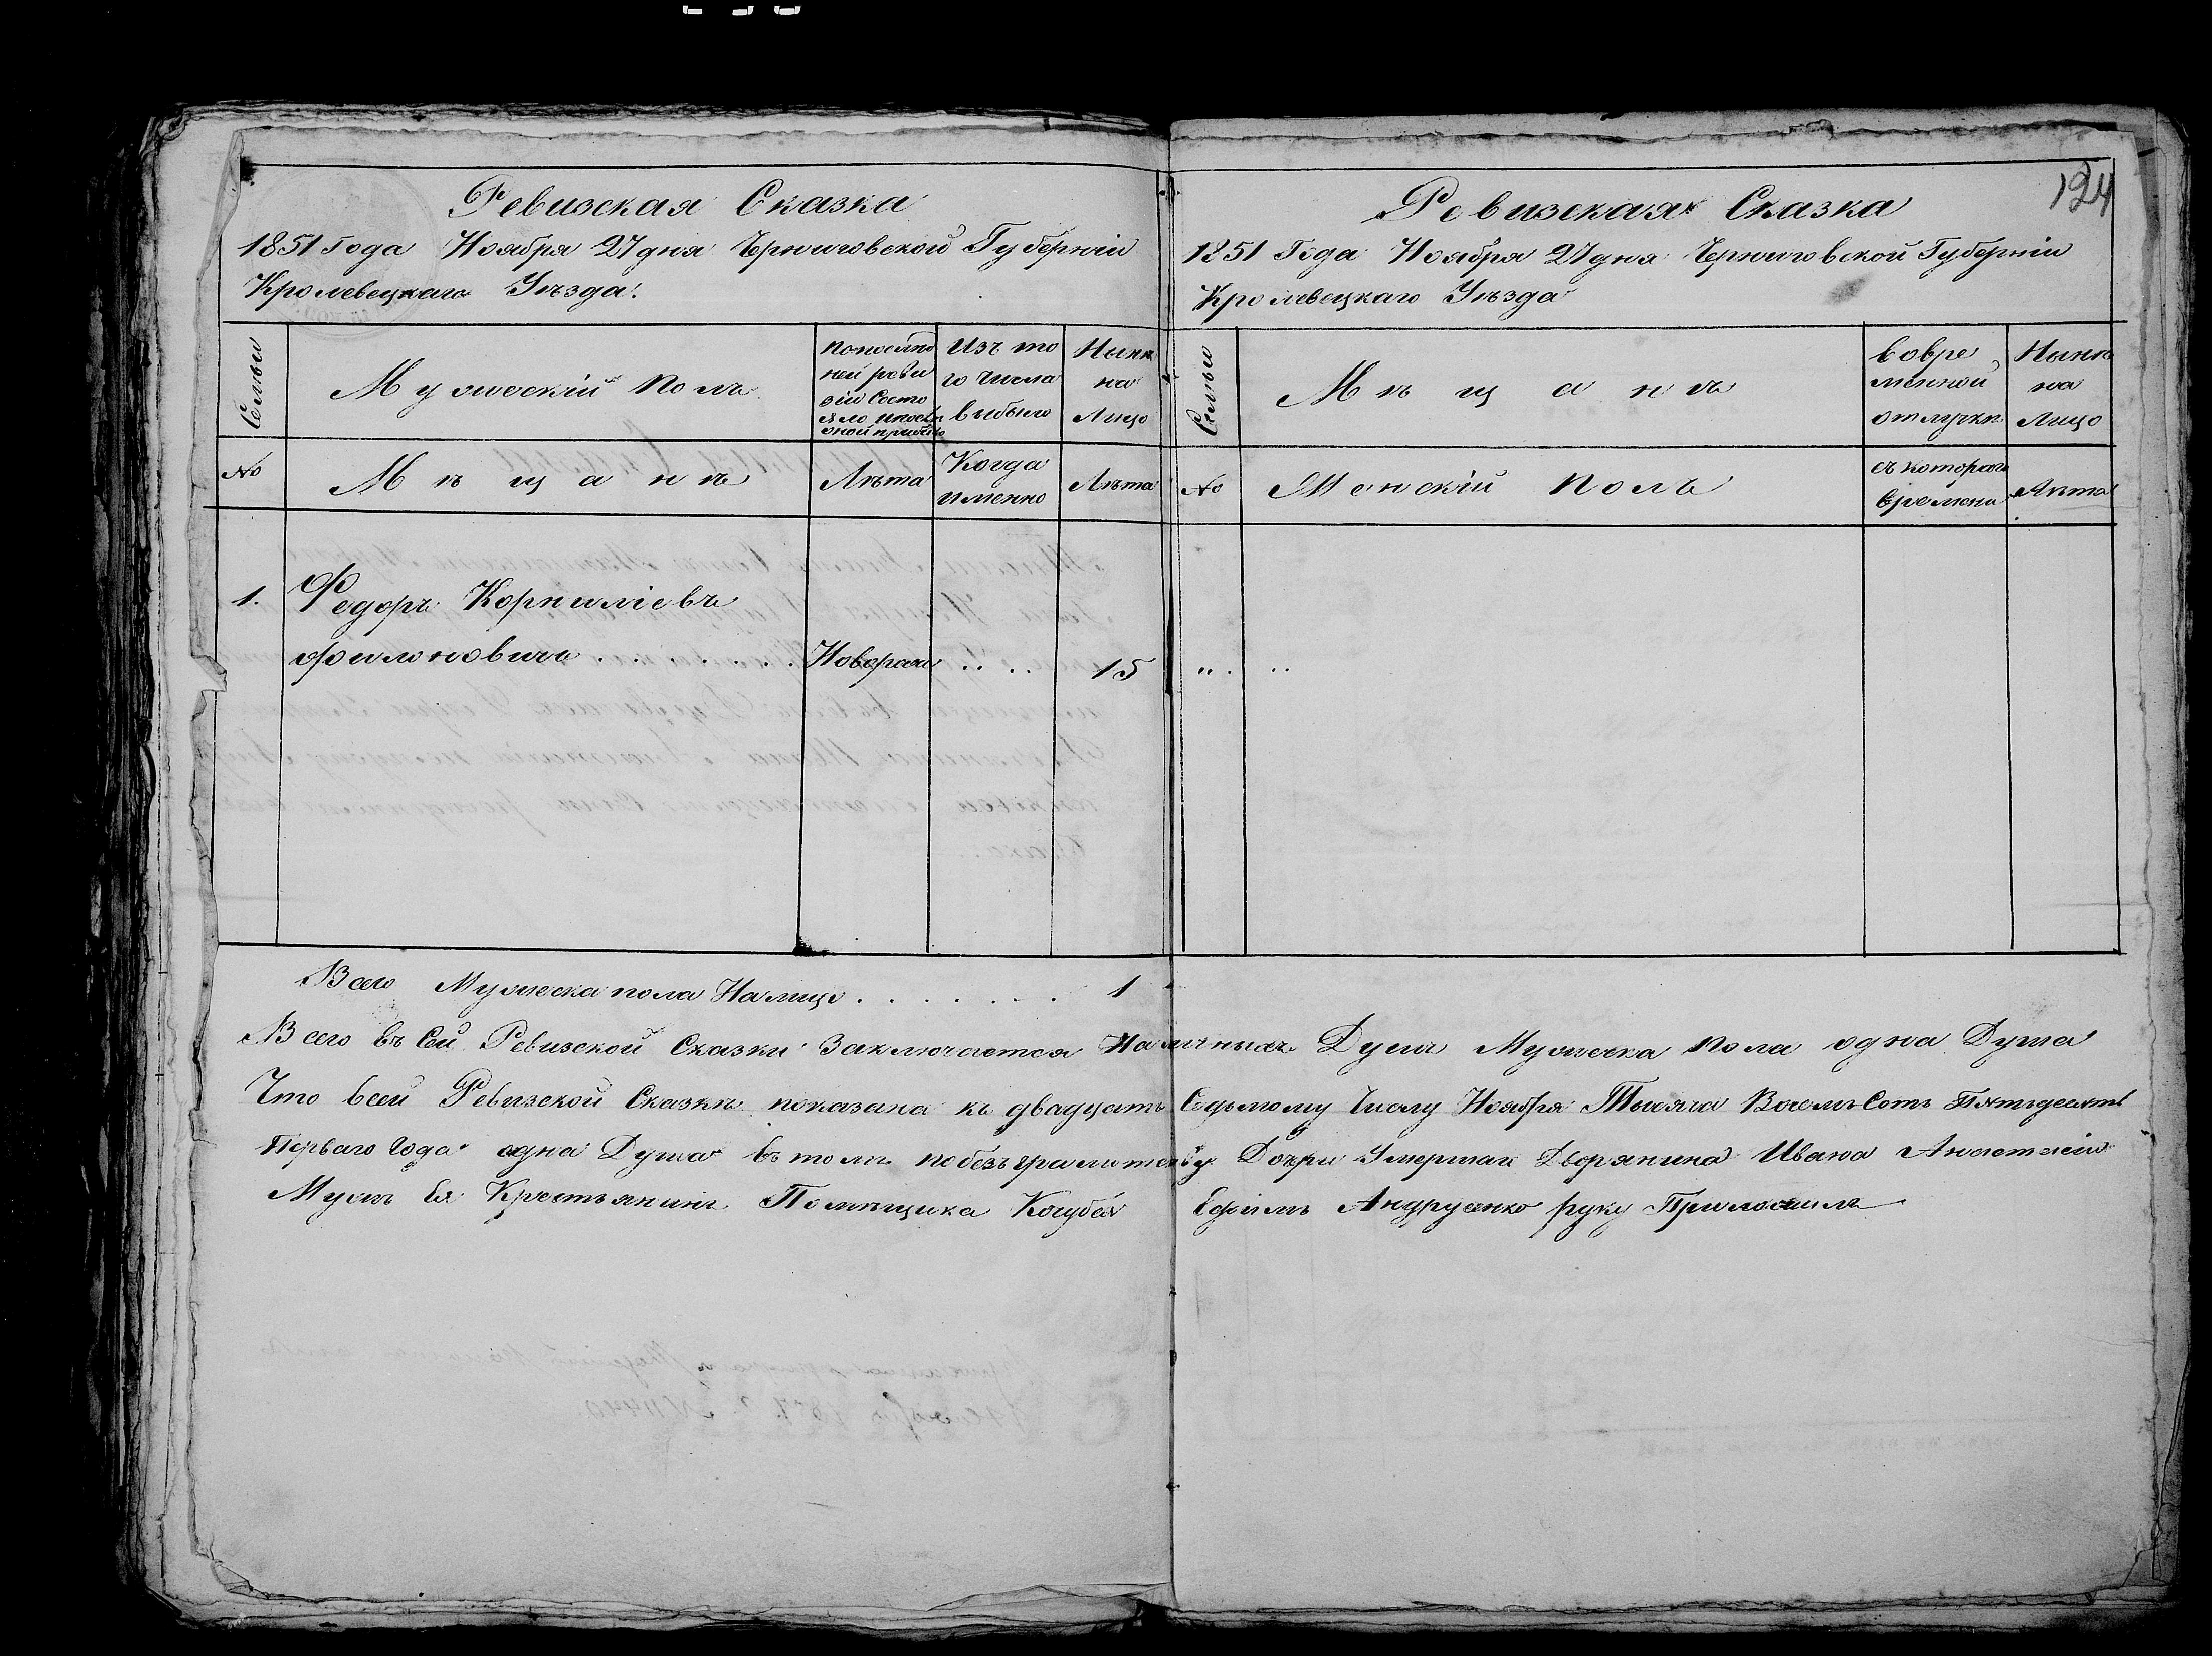 Ревизская Сказка
1851 Года Ноября 27 дня Черниговской Губерніи
Кролевецкаго Уѣзда.
Семьи
Мужескій полъ
По послѣд
ней реви
зіи Состо
яло и послѣ
оной прибыло
Изъ то
го числа
выбыло
Нынѣ
на
Лицо
№
Мѣщанѣ
Лѣта
Когда
именно
Лѣта
1.
Федоръ Корниліевъ
Филоновичъ . . . . . . . Новорож . . . . 15
Всего Мужеска пола На лицо . . . . . . . 1
124
Ревизская Сказка
1851 Года Ноября 27 дня Черниговской Губерніи
Кролевецкаго Уѣзда
Семьи
Мѣщанъ
во вре
менной
отлучкѣ
Нынѣ
на
Лицо
№
Женскій полъ
съ котораго
времени
Лѣта
" . . .
Всего въ Сей Ревизской Сказки Заключается Наличныхъ Душъ Мужеска пола одна Душа
Что въ сей Ревизской Сказкѣ показана къ двадцать Седьмому Числу Ноября Тысяча Восемъ Сотъ Пятьдесятъ
Перваго Года одна Душа въ томъ по безъграмотству Дочри Умершаго Дворянина Ивана Анастасіи
Мужъ Ея Крестьянинъ Помѣщика Кочубея Ефимъ Андрусенко руку Приложилъ